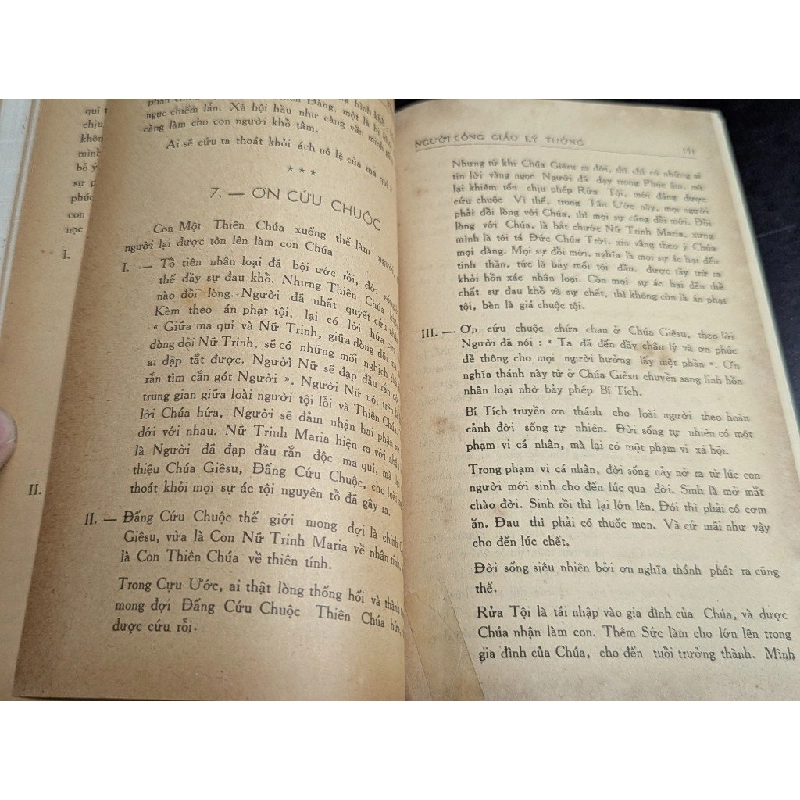 qui t
chịu
khôn
mình
bố ý
sư p
phúc
con
nọc
I.
II.
ngục chiếm lấn. Xã hội hầu như càng văn minh
càng làm cho con người khổ tâm.
Ai sẽ cứu ta thoát khỏi ách vô lệ của ma quỉ
* * *
7. — ƠN CỨU CHUỘC
Con Một Thiên Chúa xuống thế làm người,
người lại được tôn lên làm con Chúa
I. — Tổ tiên nhân loại đã bội ước rồi, đời sống
thế đầy sự đau khổ. Nhưng Thiên Chúa
nào đổi lòng. Người đã nhất quyết cứu nhân
Kèm theo án phạt tội, lại có lời hứa
« Giữa ma qui và Nữ Trinh, giữa dòng dõi
dòng dõi Nữ Trinh, sẽ có những mối nghịch
ai dập tắt được. Người Nữ sẽ đạp đầu rắn
rắn tìm cắn gót Người ». Người Nữ
trung gian giữa loài người tội lỗi và Thiên Chúa
lời Chúa hứa. Người sẽ đảm nhận hai phận sự
đối với nhau. Nữ Trinh Maria hiện ra với
là Người đã đạp đầu rắn độc ma quỉ, mà
thiệu Chúa Giêsu, Đấng Cứu Chuộc, cứu loài người
thoát khỏi mọi sự ác tội nguyên tổ đã gây ra.
II. — Đấng Cứu Chuộc thế giới mong đợi là chính
Giêsu, vừa là Con Nữ Trinh Maria về nhân tính,
là Con Thiên Chúa về thiên tính.
Trong Cựu Ước, ai thật lòng thống hối và
mong đợi Đấng Cứu Chuộc Thiên Chúa hứa,
được cứu rỗi.
NGƯỜI CÔNG GIÁO LÝ TƯỞNG
Nhưng từ khi Chúa Giêsu ra đời, thì chỉ có những ai
tin lời vâng ngợc Người đã dạy trong Phúc âm, rồi
lại khiêm tốn chịu phép Rửa Tội, mới đáng được
cứu chuộc Vì thế, trong Tân Ước này, mọi người
phải đổi lòng với Chúa, thì mọi sự cũng đổi mới. Đổi
lòng với Chúa, là bắt chước Nữ Trinh Maria, xưng
mình là tôi tá Đức Chúa Trời, xin vâng theo ý Chúa
mọi đàng. Mọi sự đổi mới, nghĩa là mọi sự ác hại đến
tinh thần, tức là bảy mối tội đầu, được tẩy trừ ra
khỏi hồn xác nhân loại. Còn mọi sự ác hại đến thể
chất sự đau khổ và sự chết, thì không còn là án phạt
tội, bèn là giá chuộc tội.
III. — Ơn cứu chuộc chứa chan ở Chúa Giêsu, theo lời
Người đã nói : « Ta đã đến đầy chân lý và ơn phúc
để thông cho mọi người hưởng lấy một phần ». Ơn
nghĩa thánh này từ ở Chúa Giêsu chuyển sang linh hồn
nhân loại nhờ bảy phép Bí Tích.
Bí Tích truyền ơn thánh cho loài người theo hoàn
cảnh đời sống tự nhiên. Đời sống tự nhiên có một
phạm vi cá nhân, mà lại có một phạm vi xã hội.
Trong phạm vi cá nhân, đời sống này nở ra từ lúc con
người mới sinh cho đến lúc qua đời. Sinh là mở mắt
chào đời. Sinh rồi thì lại lớn lên. Đói thì phải có cơm
ăn. Đau thì phải có thuốc men. Và cứ mãi như vậy
cho đến lúc chết.
Đời sống siêu nhiên bởi ơn nghĩa thánh phát ra cũng
thế.
Rửa Tội là tái nhập vào gia đình của Chúa, và được
Chúa nhận làm con. Thêm Sức làm cho lớn lên trong
gia đình của Chúa, cho đến tuổi trưởng thành. Minh